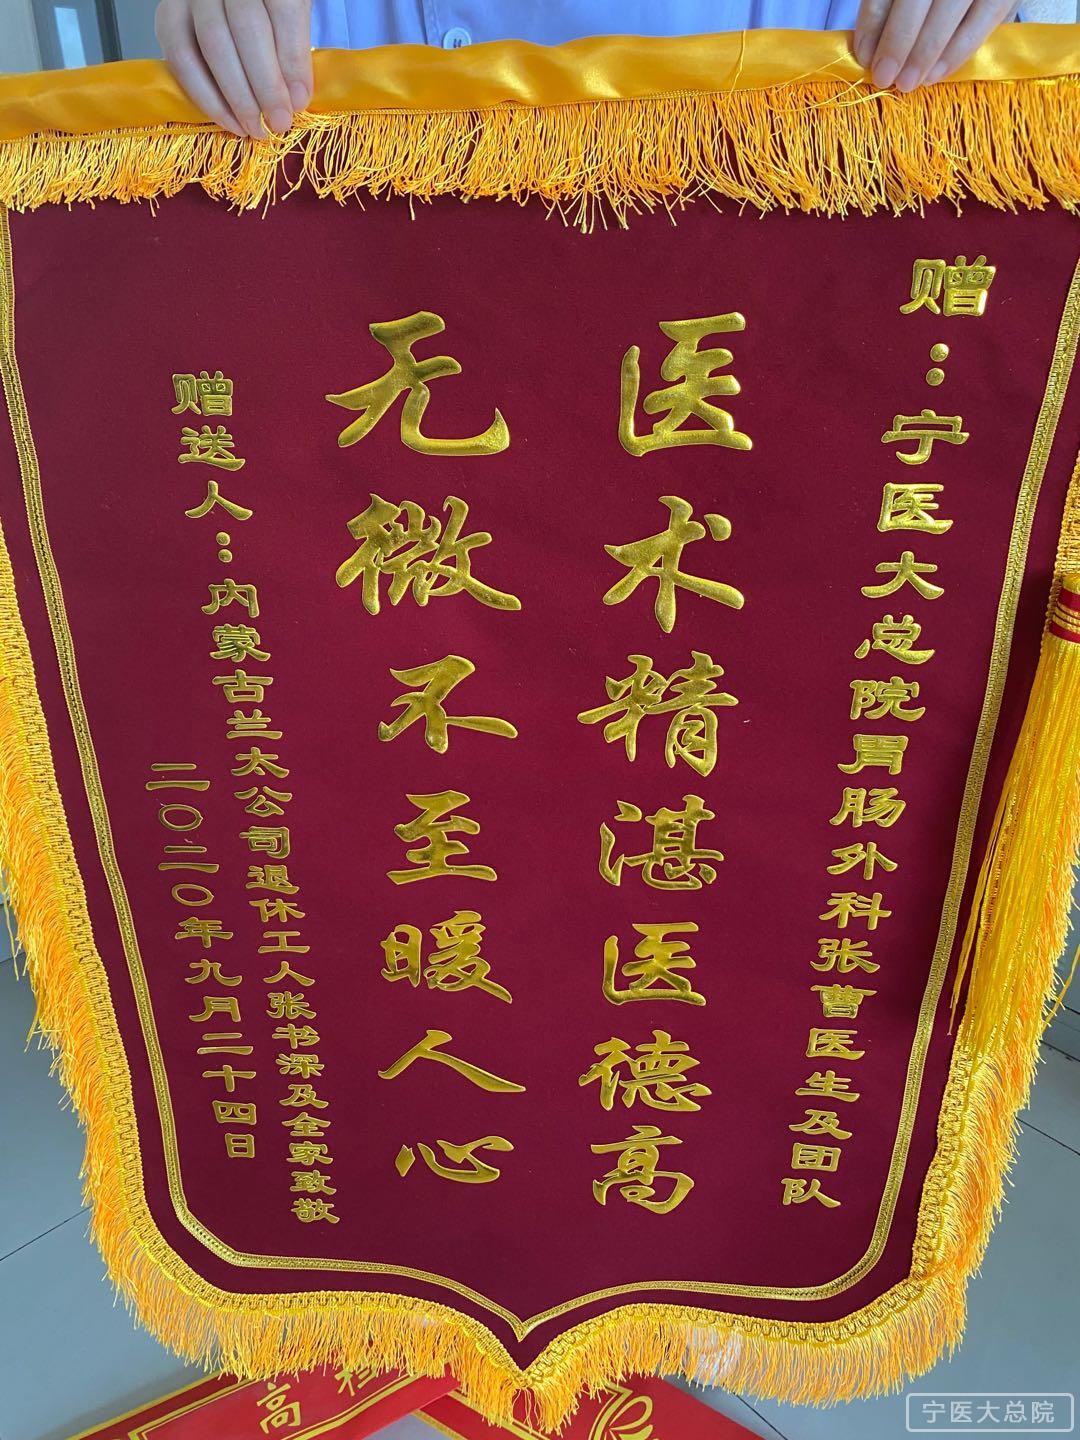 赠：宁医大总院胃肠外科张曹医生及团队
医术精湛医德高
无微不至暖人心
赠送人：内蒙古兰太公司退休工人张书深及全家致敬
二〇二〇年九月二十四日
高档
宁医大总院